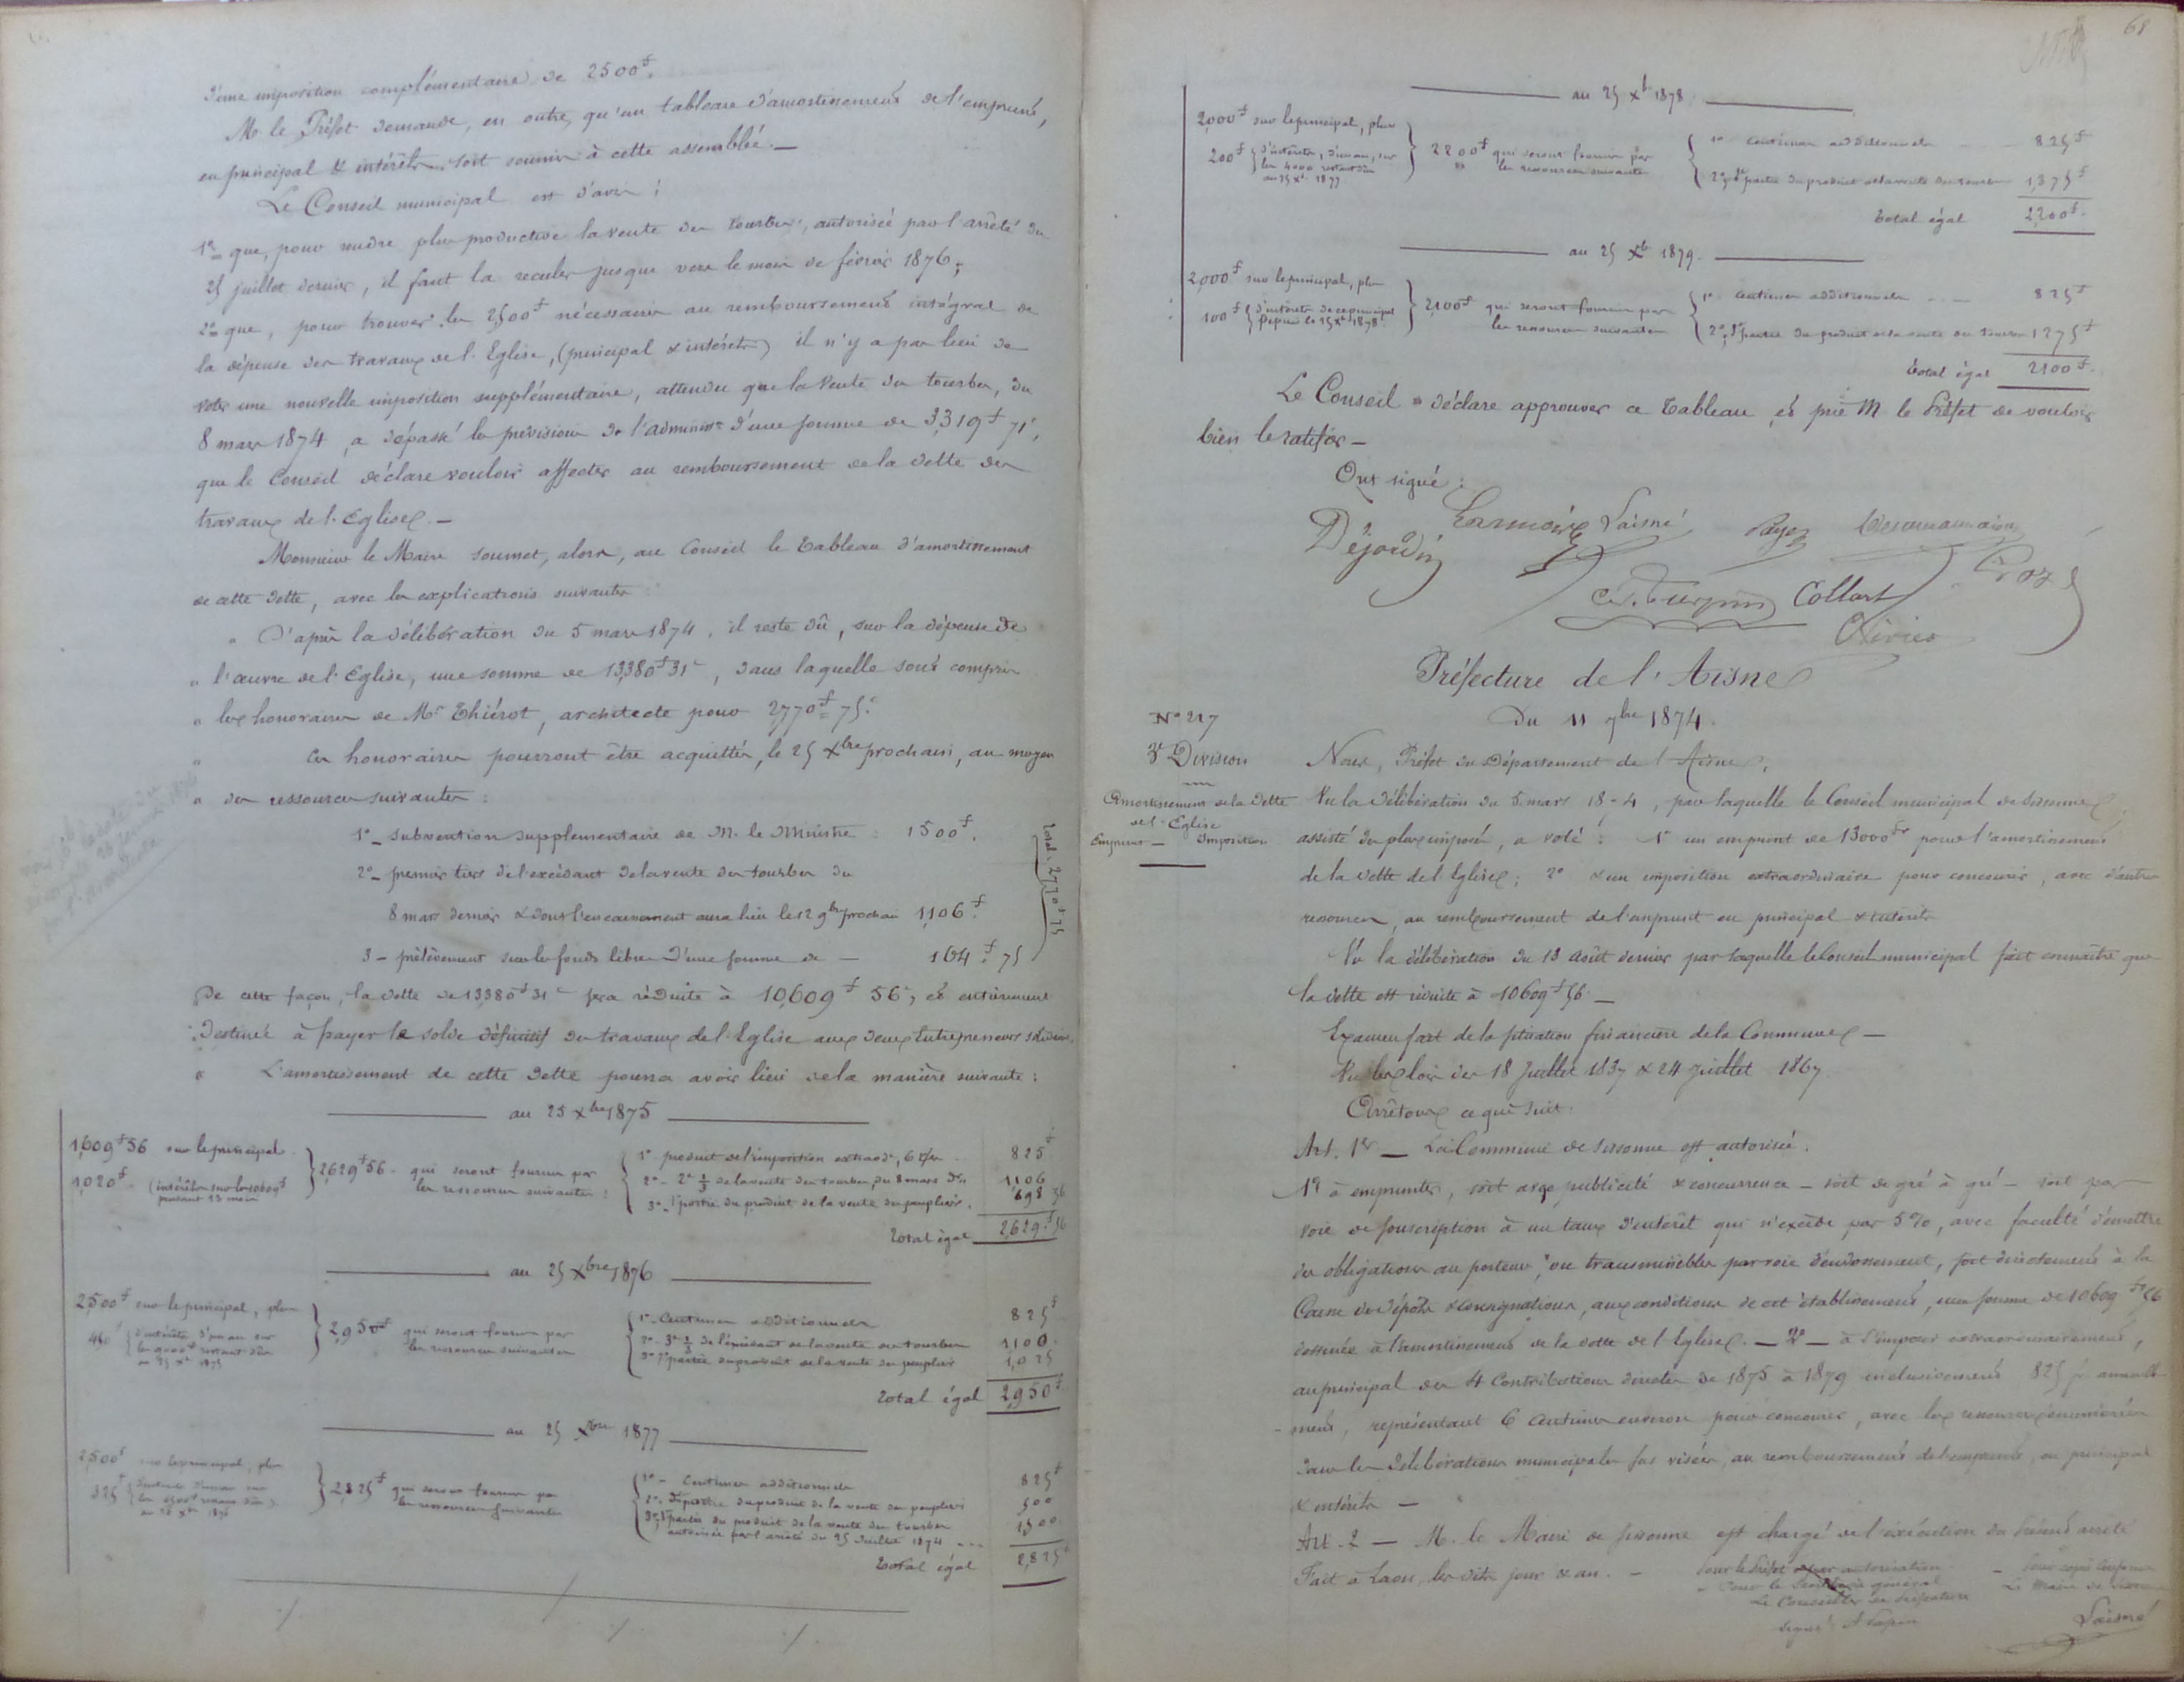 d'une imposition complémentaire de 2500f.
M. le Préfet demande, en outre, qu'un tableau d'amortissement de l'emprunt,
en principal & intérêts, soit soumis à cette assemblée. —
Le Conseil municipal est d'avis :
1º que, pour rendre plus productive la vente des tourbes, autorisée par l'arrêté du
25 juillet dernier, il faut la reculer jusque vers le mois de février 1876;
2º que, pour trouver les 2,500f nécessaires au remboursement intégral de
la dépense des travaux de l'Eglise, (principal & intérêts) il n'y a pas lieu de
voter une nouvelle imposition supplémentaire, attendu que la vente des tourbes, du
8 mars 1874, a dépassé les prévisions de l'adminison d'une somme de 3,319f 71c,
que le Conseil déclare vouloir affecter au remboursement de la dette des
travaux de l'Eglise. —
Monsieur le Maire soumet, alors, au Conseil le tableau d'amortissement
de cette dette, avec les explications suivantes :
" D'après la délibération du 5 mars 1874, il reste dû, sur la dépense de
" l'œuvre de l'Eglise, une somme de 13,380f 31c, dans laquelle sont compris
" les honoraires de Mr Thiérot, architecte pour 2,770f 75c
" Ces honoraires pourront être acquittés, le 25 Xbre prochain, au moyen
" des ressources suivantes :
1º — subvention supplémentaire de M. le Ministre : 1500f.
2º — premier tiers de l'excédant de la vente des tourbes du
8 mars dernier & dont l'encaissement aura lieu le 12 9bre prochain 1,106f.
3 — prélèvement sur les fonds libres d'une somme de — 164f. 75
total : 2,770f 75
De cette façon, la dette de 13,380f 31c sera réduite à 10,609f 56c, et entièrement
destinée à payer le solde définitif des travaux de l'Eglise aux deux Entrepreneurs
" L'amortissement de cette dette pourra avoir lieu de la manière suivante :
au 25 Xbre 1875
1,609f 56 sur le principal.
1,020f. (intérêts sur les 10609f
pendant 23 mois
2,629f 56. qui seront fournis par
les ressources suivantes :
1º produit de l'imposition extraord., 6 cmes 825f
2º — 2e 1/3 de la vente des tourbes, du 8 mars dr 1106
3º — 1e partie du produit de la vente des peupliers. 698 56
Total égal 2,629f 56
au 25 Xbre 1876
2,500f sur le principal, plus
450f d'intérêts d'un an sur
les 9000f restant dûs
au 25 Xbre 1875
2,950f qui seront fournis par
les ressources suivantes
1º — Centimes additionnels 825f
2º — 3e 1/3 de l'excédant de la vente des tourbes 1100.
3º 2e partie du produit de la vente des peupliers 1,025
Total égal 2,950f
au 25 Xbre 1877
2,500f sur le principal, plus
325f d'intérêts d'un an sur
les 6500f restant dûs
au 25 Xbre 1876
2,825f qui seront fournis par
les ressources suivantes
1º — Centimes additionnels 825f
2º — 3e partie du produit de la vente des peupliers 500
3º, 1e partie du produit de la vente des tourbes
autorisée par l'arrêté du 25 Juillet 1874 ... 1,500.
Total égal 2,825f
68
au 25 Xbre 1878
2,000f sur le principal, plus
200f d'intérêts, d'un an, sur
les 4000 restant dûs
au 25 Xbre 1877
2200f qui seront fournis par
les ressources suivantes
1º Centimes additionnels 825f
2º, 2e partie du produit de la vente des tourbes 1,375f
Total égal 2,200f.
au 25 Xbre 1879.
2,000f sur le principal, plus
100f d'intérêts de ce principal
depuis le 25 Xbre 1878
2,100f qui seront fournis par
les ressources suivantes
1º Centimes additionnels 825f
2º, 3e partie du produit de la vente des tourbes 1275f
Total égal 2100f.
Le Conseil déclare approuver ce tableau, et prie M le Préfet de vouloir
bien le ratifier —
Ont signé :
Larmoire Laisné Payer
Déjardin
Turpin Collart
Olivier
Préfecture de l'Aisne
Du 11 7bre 1874.
Nº 217
3e Division
Amortissement de la dette
de l'Eglise
Emprunt — Imposition
Nous, Préfet du Département de l'Aisne,
Vu la délibération du 5 mars 18-4, par laquelle le Conseil municipal de Sissonne
assisté des plus imposés, a voté : 1º un emprunt de 13000fr pour l'amortissement
de la dette de l'Eglise; 2º & un imposition extraordinaire pour concourir, avec d'autres
ressources, au remboursement de l'emprunt en principal & intérêts
Vu la délibération du 13 Août dernier par laquelle le Conseil municipal fait connaître que
la dette est réduite à 10609f 56. —
Examen fait de la situation financière de la Commune —
Vu les lois des 18 Juillet 1837 & 24 Juillet 1867.
Arrêtons ce qui suit :
Art. 1er — La Commune de Sissonne est autorisée.
1º à emprunter, soit avec publicité & concurrence — soit de gré à gré — soit par
voie de souscription à un taux d'intérêt qui n'excède pas 5%, avec faculté d'émettre
des obligations au porteur, ou transmissibles par voie d'endossement, soit directement à la
Caisse des dépôts & consignations, aux conditions de cet établissement, une somme de 10609fr 56
destinée à l'amortissement de la dette de l'Eglise. — 2º — à s'imposer extraordinairement,
au principal des 4 Contributions directes de 1875 à 1879 inclusivement 825f annuelle-
-ment, représentant 6 centimes environ pour concourir, avec les ressources énumérées
dans les délibérations municipales sus visées, au remboursement de l'emprunt, en principal
& intérêts —
Art. 2 — M. le Maire de Sissonne est chargé de l'exécution du présent arrêté
Fait à Laon, les dits jour & an. —
Pour le Préfet & par autorisation
Pour le Secrétaire général
Le Conseiller de Préfecture
Signé :
Pour copie conforme
Le Maire de Sissonne
Laisné